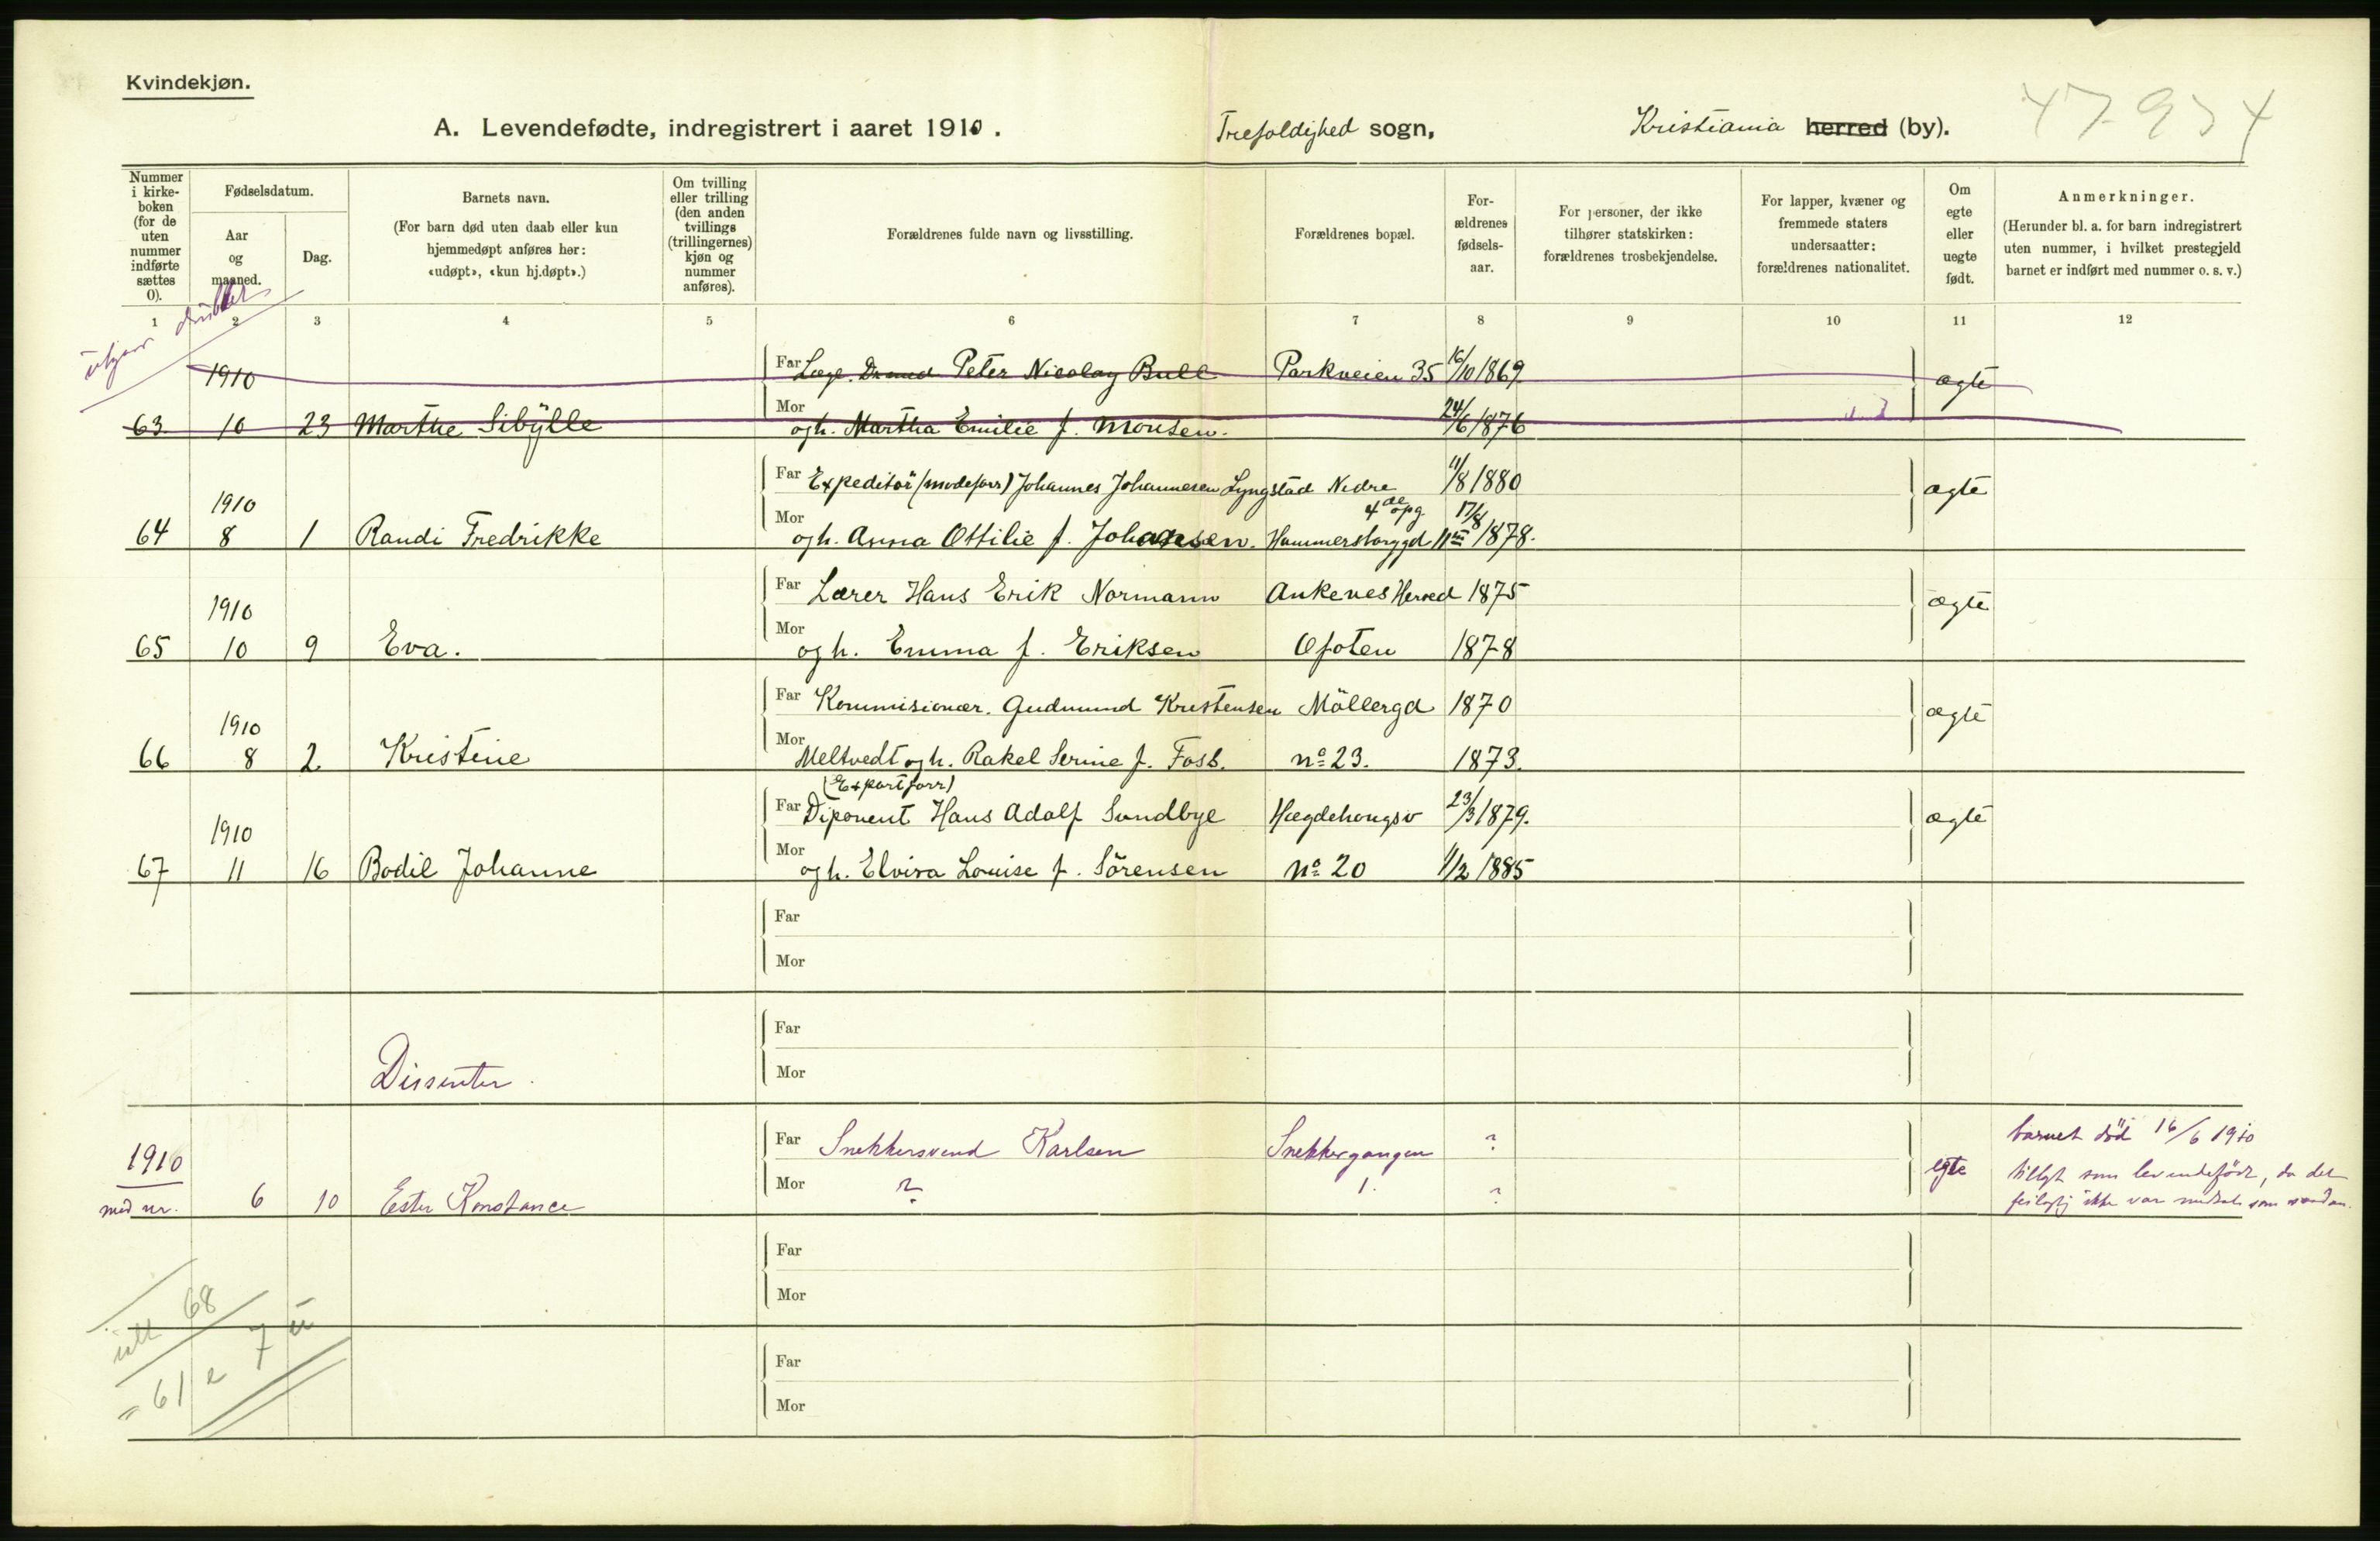 Kvindekjøn.
A. Levendefødte, indregistrert i aaret 1910. Trefoldighed sogn, Kristiania herred (by).
Nummer i kirke-boken (for de uten nummer indførte sættes 0).
Fødselsdatum.
Aar og maaned.
Dag.
Barnets navn.
(For barn død uten daab eller kun hjemmedøpt anføres her: «udøpt», «kun hj.døpt».)
Om tvilling eller trilling (den anden tvillings (trillingernes) kjøn og nummer anføres).
Forældrenes fulde navn og livsstilling.
Forældrenes bopæl.
For-ældrenes fødsels-aar.
For personer, der ikke tilhører statskirken: forældrenes trosbekjendelse.
For lapper, kvæner og fremmede staters undersaatter: forældrenes nationalitet.
Om egte eller uegte født.
Anmerkninger.
(Herunder bl. a. for barn indregistrert uten nummer, i hvilket prestegjeld barnet er indført med nummer o. s. v.)
1 2 3 4 5 6 7 8 9 10 11 12
utgaar
1910 Far Læge Peter Nicolay Bull Parkveien 35 16/10 1869 ægte
63 10 23 Marthe Sibylle Mor og h. Martha Emilie f. Monsen. 24/6 1876
Far Expeditör (modeforr) Johannes Johannesen Lyngstad Nedre 11/8 1880 ægte
1910 4de opg. 17/8
64 8 1 Randi Fredrikke Mor og h. Anna Ottilie f. Johansen. Hammersborggd 11III 1878.
1910 Far Lærer Hans Erik Normann Ankenes Herred 1875 ægte
65 10 9 Eva. Mor og h. Emma f. Eriksen Ofoten 1878
1910 Far Kommisionær. Gudmund Kristensen Möllergd 1870 ægte
66 8 2 Kristine Mor Meltvedt og h. Rakel Serine f. Fosb. no 23. 1873.
(Exportforr)
1910 Far Diponent Hans Adolf Sundbye Hægdehougsv 23/3 1879. ægte
67 11 16 Bodil Johanne Mor og h. Elvira Louise f. Sörensen no 20 1/2 1885
Far
Mor
Far
Dissenter. Mor
1910 Far Snekkersvend Karlsen Snekkergangen ? egte barnet död 16/6 1910
med nr. 6 10 Ester Konstance Mor ? 1. ? tillagt som levendefödt, da det
feilagtig ikke var medtat som saadan.
Far
Mor
ialt 68
= 61 e 7 u
Far
Mor